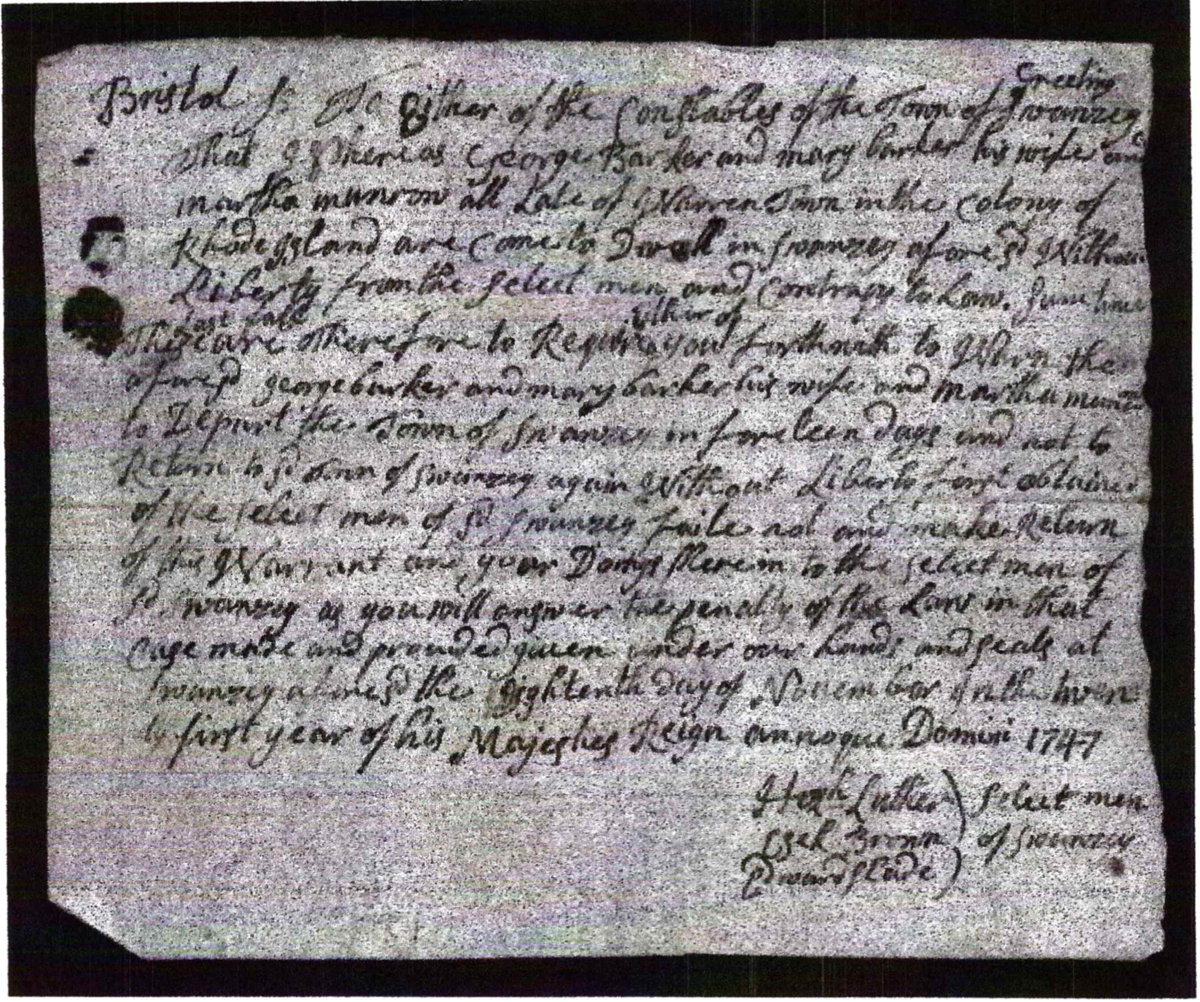 Greeting
Bristol ss To Either of the Constables of the Town of Swanzey
That Whereas George Barker and mary barker his wife and
martha munrow all Late of Warren Town in the Colony of
Rhode Island are Come to Dwell in Swanzey afore sd Without
Liberty from the Select men and Contrary to Law. Sum time
Last fall
either of
These are Therefore to Require you forthwith to Warn the
afore sd george barker and mary barker his wife and martha
to Depart the Town of Swanzey in foreteen days and not to
Return to sd Town of Swanzey again Without Liberty first obtained
of the Select men of sd Swanzey faile not and make Return
of this Warrant and your Doings therein to the Select men of
sd Swanzey as you will answer the penalty of the Law in that
Case made and provided given under our hands and Seals at
Swanzey afore sd the Eightenth day of November In the twen
ty first year of his Majesties Reign annoque Domini 1747
Hugh Luther ) Select men
Brown ) of Swanzey
Edward Slade )